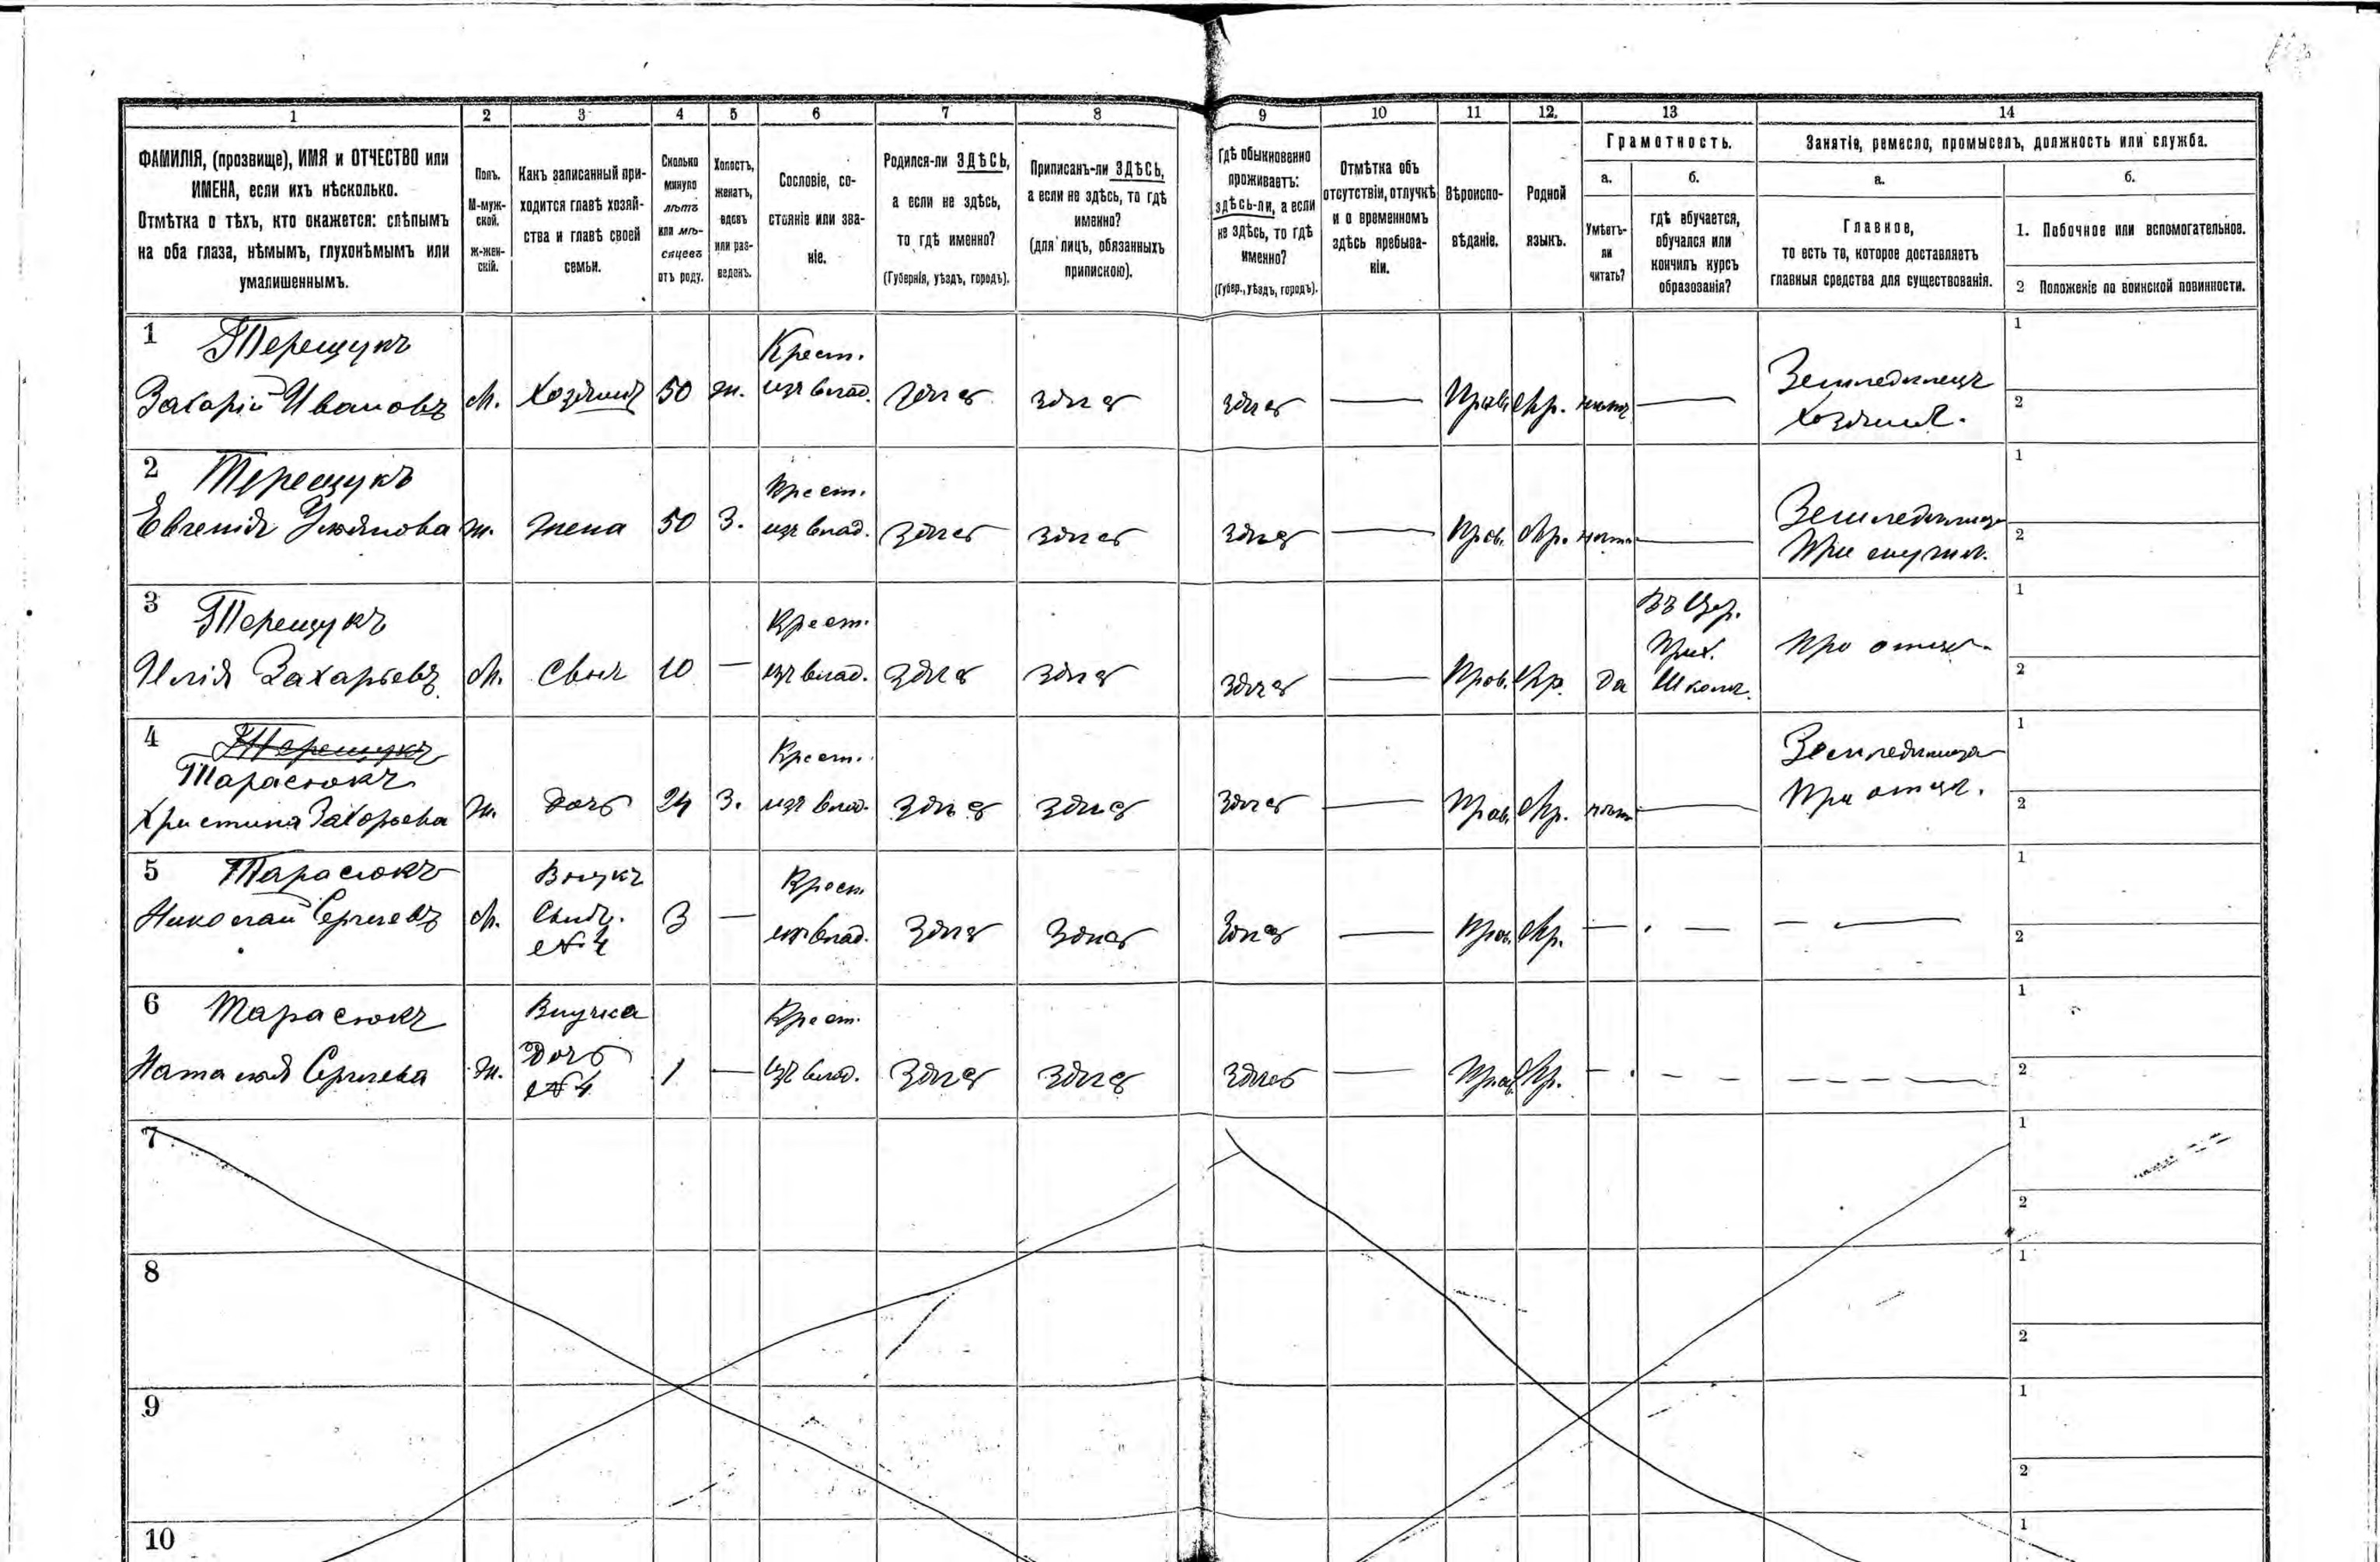 1 2 3 4 5 6 7 8 9 10 11 12. 13 14
ФАМИЛІЯ, (прозвище), ИМЯ и ОТЧЕСТВО или
ИМЕНА, если ихъ нѣсколько.
Отмѣтка о тѣхъ, кто окажется: слѣпымъ
на оба глаза, нѣмымъ, глухонѣмымъ или
умалишеннымъ.
Полъ.
М-муж-
ской.
ж-жен-
скій.
Какъ записанный при-
ходится главѣ хозяй-
ства и главѣ своей
семьи.
Сколько
минуло
лѣтъ
или мѣ-
сяцевъ
отъ роду.
Холостъ,
женатъ,
вдовъ
или раз-
веденъ.
Сословіе, со-
стояніе или зва-
ніе.
Родился-ли ЗДѢСЬ,
а если не здѣсь,
то гдѣ именно?
(Губернія, уѣздъ, городъ).
Приписанъ-ли ЗДѢСЬ,
а если не здѣсь, то гдѣ
именно?
(для лицъ, обязанныхъ
припискою).
Гдѣ обыкновенно
проживаетъ:
здѣсь-ли, а если
не здѣсь, то гдѣ
именно?
(Губер., уѣздъ, городъ).
Отмѣтка объ
отсутствіи, отлучкѣ
и о временномъ
здѣсь пребыва-
ніи.
Вѣроиспо-
вѣданіе.
Родной
языкъ.
Грамотность.
а.
Умѣетъ-
ли
читать?
б.
гдѣ обучается,
обучался или
кончилъ курсъ
образованія?
Занятіе, ремесло, промыселъ, должность или служба.
а.
Главное,
то есть то, которое доставляетъ
главныя средства для существованія.
б.
1. Побочное или вспомогательное.
2 Положеніе по воинской повинности.
1 Терещукъ
Захарій Ивановъ м. Хозяинъ 50 ж. Крест. изъ влад. Здѣсь здѣсь здѣсь — Прав. Мр. нѣтъ — Земледѣлецъ
Хозяинъ.
1
2
2 Терещукъ
Евгенія Ульянова ж. жена 50 З. Крест. изъ влад. здѣсь здѣсь здѣсь — Прав. Мр. нѣтъ — Земледѣлица
При мужѣ.
1
2
3 Терещукъ
Илія Захарьевъ м. Сынъ 10 — Крест. изъ влад. здѣсь здѣсь здѣсь — Прав. Мр. да Въ Цер. Прих. Школѣ. При отцѣ.
1
2
4 Терещукъ
Тарасюкъ
Христина Захарьева ж. Дочь 24 З. Крест. изъ влад. здѣсь здѣсь здѣсь — Прав. Мр. нѣтъ — Земледѣлица
При отцѣ.
1
2
5 Тарасюкъ
Николай Сергѣевъ м. Внукъ Сынъ №4 3 — Крест. изъ влад. здѣсь здѣсь здѣсь — Прав. Мр. — — —
1
2
6 Тарасюкъ
Наталія Сергѣева ж. Внучка Дочь №4 1 — Крест. изъ влад. здѣсь здѣсь здѣсь — Прав. Мр. — — —
1
2
7
1
2
8
1
2
9
1
2
10
1